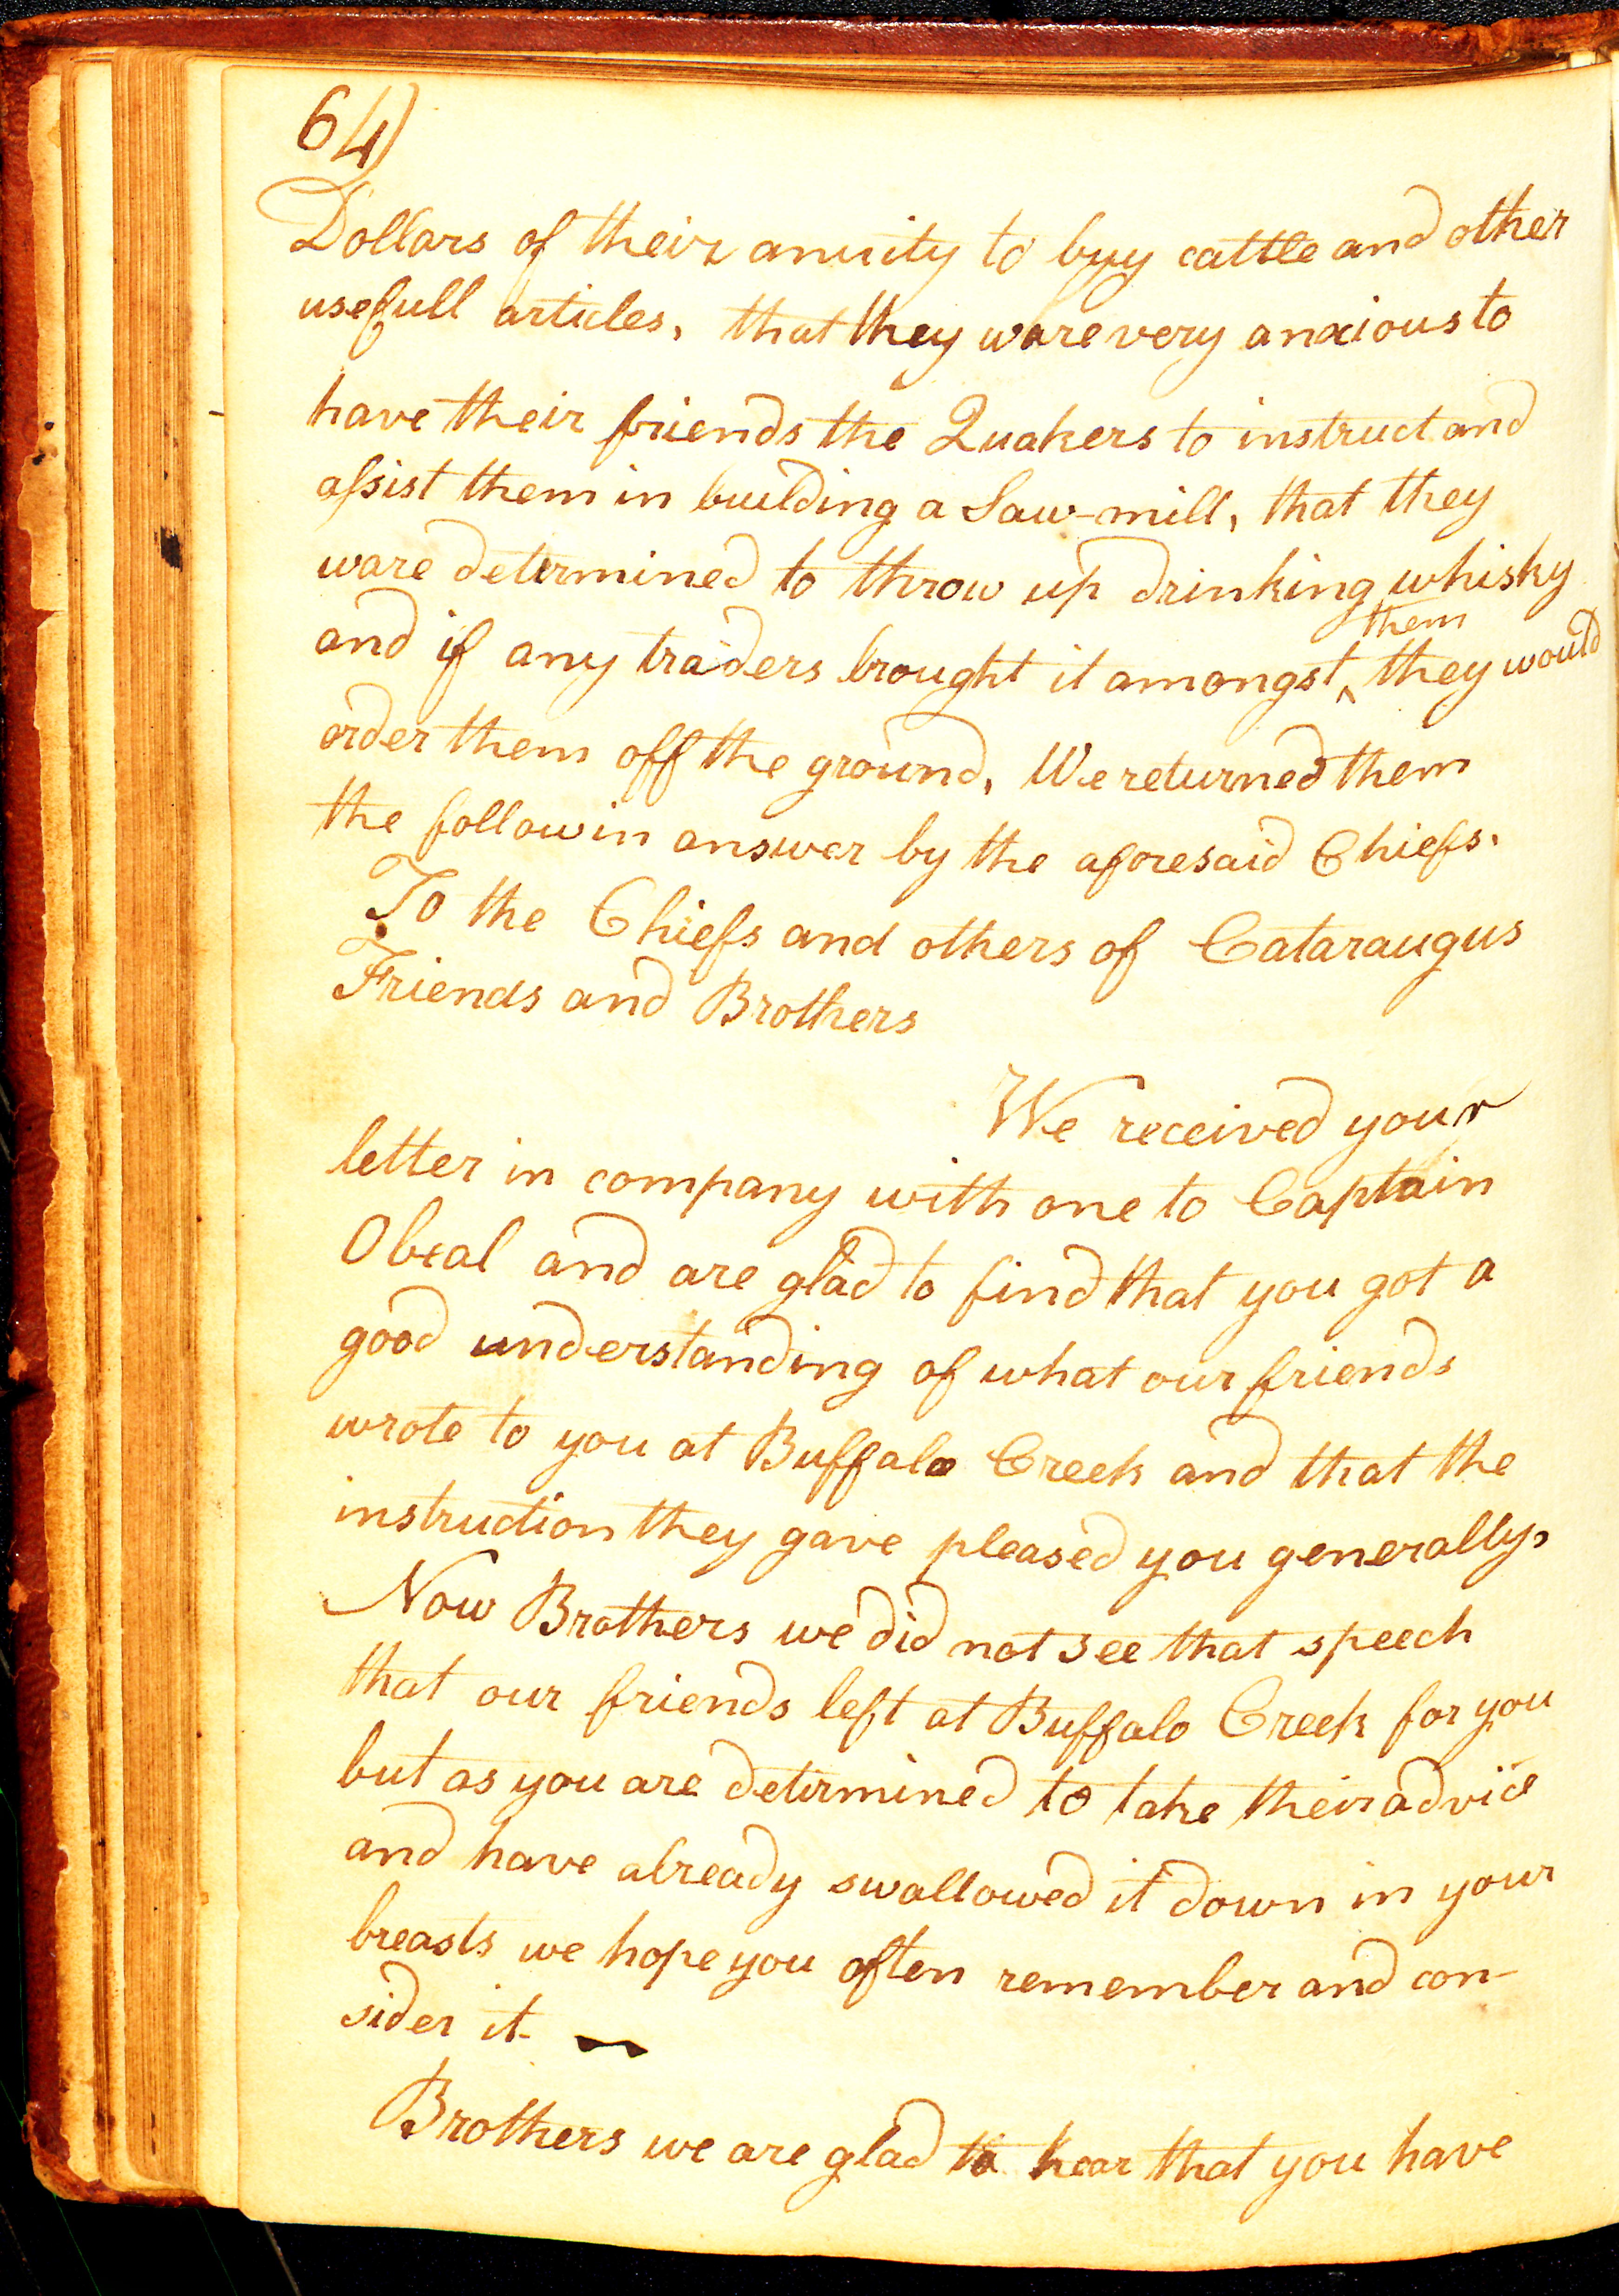 64)
Dollars of their anuity to buy cattle and other
usefull articles, that they ware very anxious to
have their friends the Quakers to instruct and
assist them in building a Saw-mill, that they
ware determined to throw up drinking whisky
them
and if any traders brought it amongst ‸ they would
order them off the ground, We returned them
the followin answer by the aforesaid Chiefs.
To the Chiefs and others of Cataraugus
Friends and Brothers
We received your
letter in company with one to Captain
Obeal and are glad to find that you got a
good understanding of what our friends
wrote to you at Buffalo Creek and that the
instruction they gave pleased you generally,
Now Brothers we did not see that speech
that our friends left at Buffalo Creek for you
but as you are determined to take their advice
and have already swallowed it down in your
breasts we hope you often remember and con-
sider it —
Brothers we are glad to hear that you have